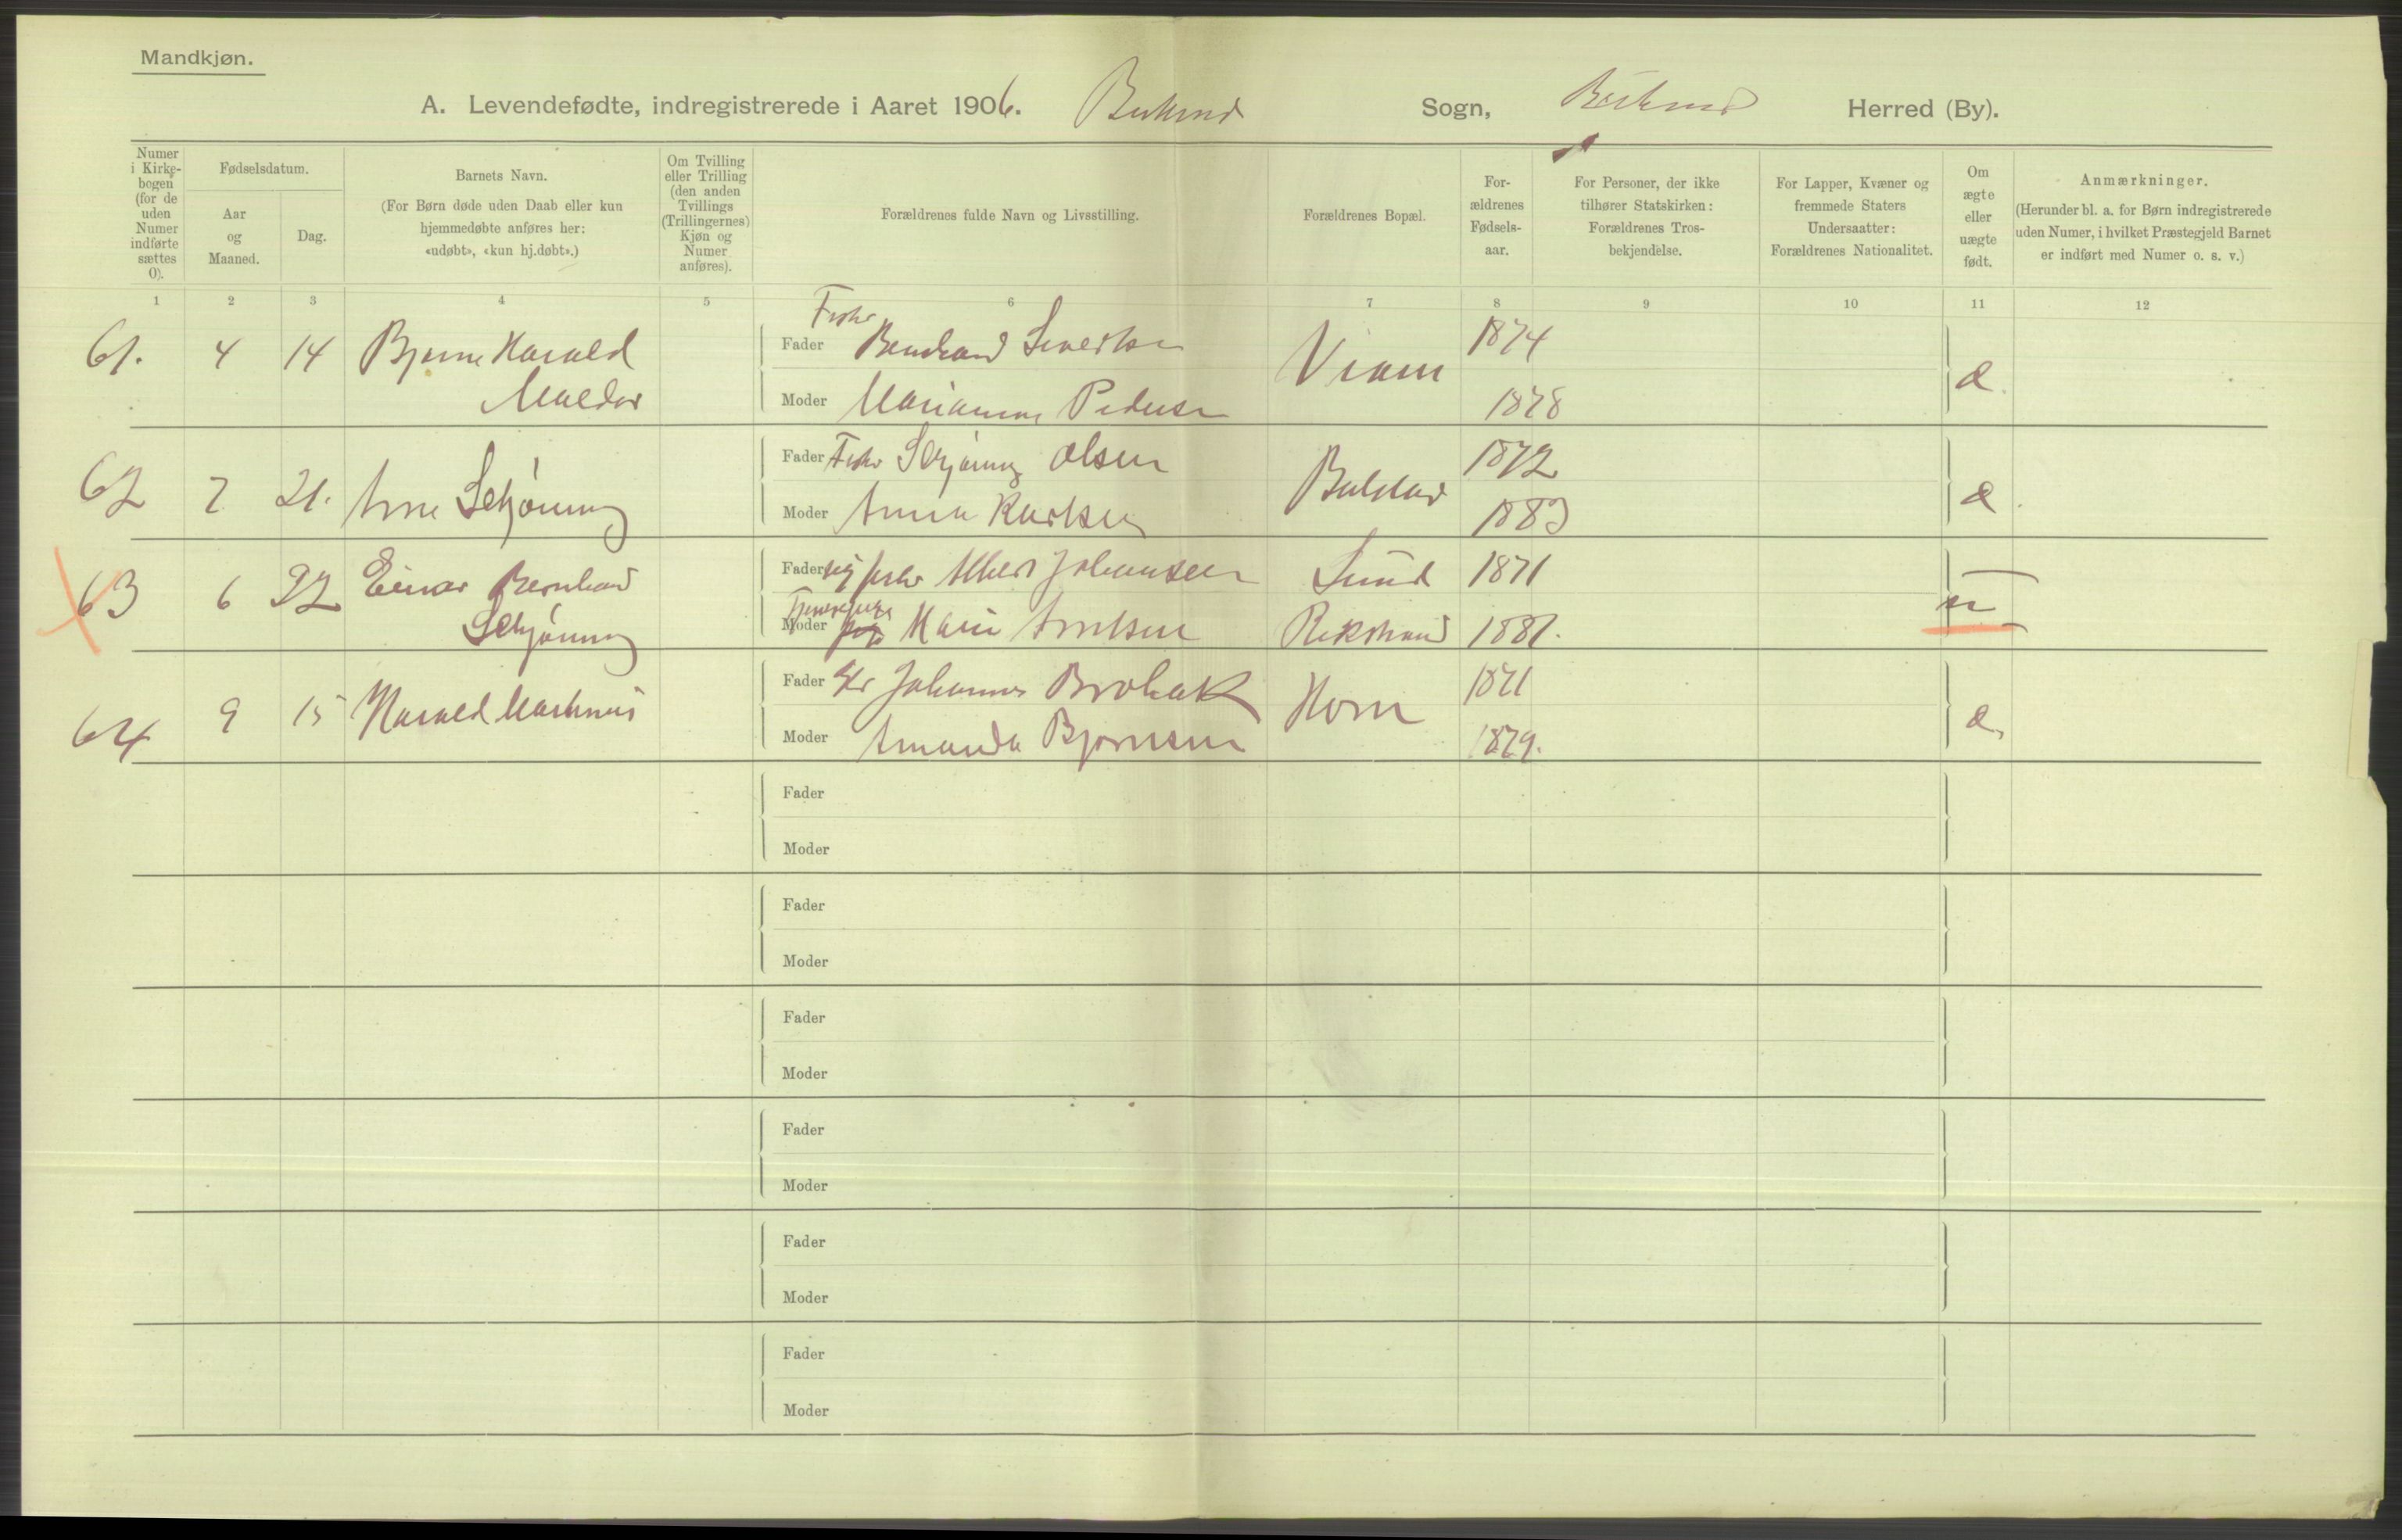 Mandkjøn.
A. Levendefødte, indregistrerede i Aaret 1906. Buksnes Sogn, Buksnes Herred (By).
Numer i Kirke-bogen (for de uden Numer indførte sættes 0).
Fødselsdatum.
Aar og Maaned.
Dag.
Barnets Navn.
(For Børn døde uden Daab eller kun hjemmedøbte anføres her: «udøbt», «kun hj.døbt».)
Om Tvilling eller Trilling (den anden Tvillings (Trillingernes) Kjøn og Numer anføres).
Forældrenes fulde Navn og Livsstilling.
Forældrenes Bopæl.
For-ældrenes Fødsels-aar.
For Personer, der ikke tilhører Statskirken: Forældrenes Tros-bekjendelse.
For Lapper, Kvæner og fremmede Staters Undersaatter: Forældrenes Nationalitet.
Om ægte eller uægte født.
Anmærkninger.
(Herunder bl. a. for Børn indregistrerede uden Numer, i hvilket Præstegjeld Barnet er indført med Numer o. s. v.)
1 2 3 4 5 6 7 8 9 10 11 12
61. 4 14 Bjarne Harald
Fader Fisker Bernhard Sivertsen 1874
Moder Marianne Pedersen 1878
æ
62 7 21. Arne Schjønning
Fader Fisker Schjønning Olsen Balstad 1872
Moder Anna Karlsen 1883
æ
63 6 22 Einar Bernhard
Schjønning
Fader fisker Albert Johansen Sund 1871
Moder Marie Arntsen 1881.
u
64 9 15 Harald
Fader Johannes Horn 1871
Moder Amanda Bjørnsen 1879.
æ
Fader
Moder
Fader
Moder
Fader
Moder
Fader
Moder
Fader
Moder
Fader
Moder